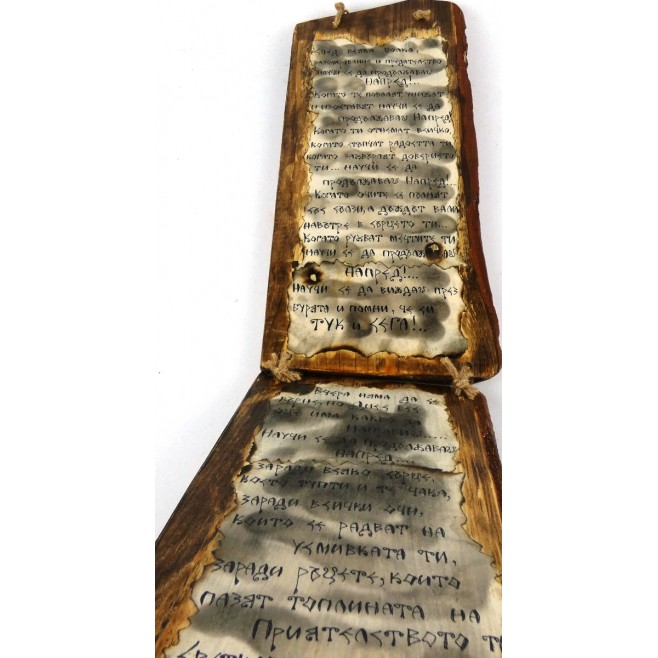 След всяка болка,
разочарование и предателство
научи се да продължаваш
Напред!...
Когато те повалят, унижат
и изоставят научи се да
продължаваш Напред!
Когато ти отнемат всичко,
когато стъпчат радостта ти
когато захвърлят доверието
ти... научи се да
продължаваш Напред!...
Когато очите се пълнят
със сълзи, а дъждът вали
навътре в сърцето ти...
Когато рушат мечтите ти
научи се да продължаваш
Напред!...
Научи се да виждаш през
бурята и помни, че си
ТУК и СЕГА!..
Вчера няма да се
върне, но днес все
още има какво да
направиш.....
Научи се да продължаваш
Напред....
Заради всяко сърце,
което тупти и те чака,
заради всички очи,
които се радват на
усмивката ти,
заради ръцете, които
пазят топлината на
Приятелството ти